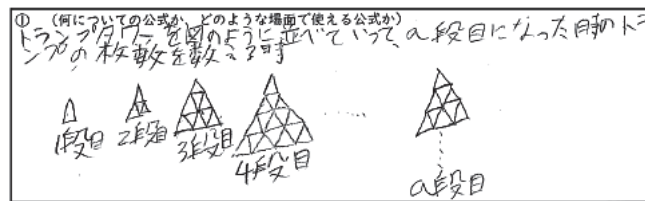 ① （何についての公式か、どのような場面で使える公式か）
トランプタワーを図のように並べていって、a段目になった時のトラ
ンプの枚数を数える時
1段目 2段目 3段目 4段目 …… a段目